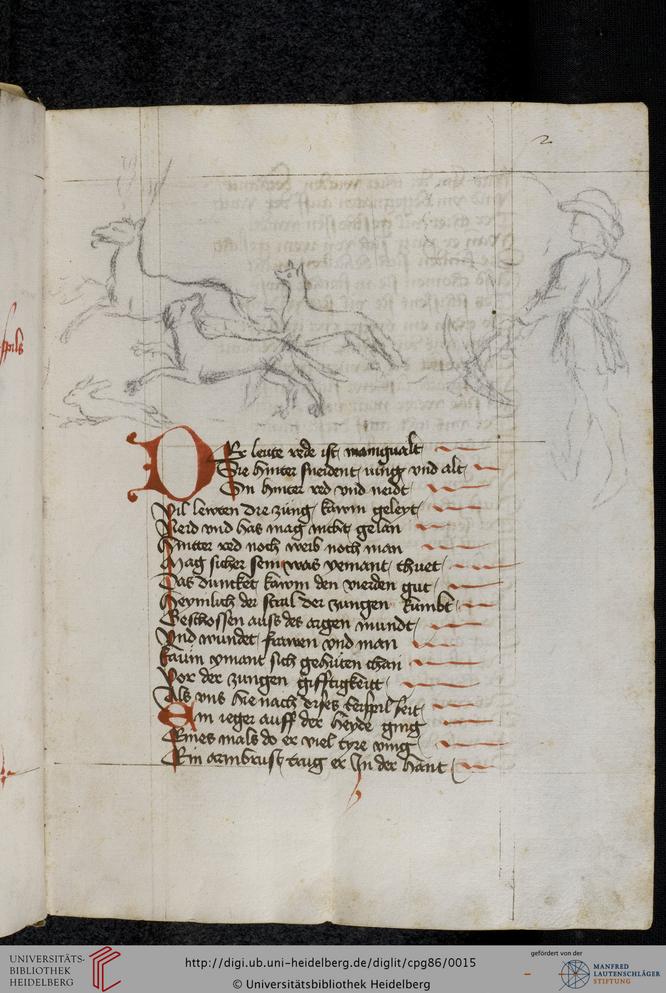 2
Der leute rede ist manigualt
Die hinter sneident iung vnd alt
Ein hinter red vnd neidt
Vil lewten die zung kawm geleyt
Neid vnd has mag nicht gelan
Hinter red noch weib noch man
Mag sicher sein was yemant thuet
Das duncket kawm den vierden gut
Heymlich der stral der zungen kumbt
Geschossen auss des argen mundt
Vnd wundet frawen vnd man
kaum ymant sich gehüten chan
Vor der zungen gifftigkeitt
Als vns hie nach dises beispil seit
Ein ieger auff der heyde ging
Eines mals do er viel tyre ving
Ein armbrust trug er In der hant
UNIVERSITÄTS-
BIBLIOTHEK
HEIDELBERG
http://digi.ub.uni-heidelberg.de/diglit/cpg86/0015
© Universitätsbibliothek Heidelberg
gefördert von der
MANFRED
LAUTENSCHLÄGER
STIFTUNG